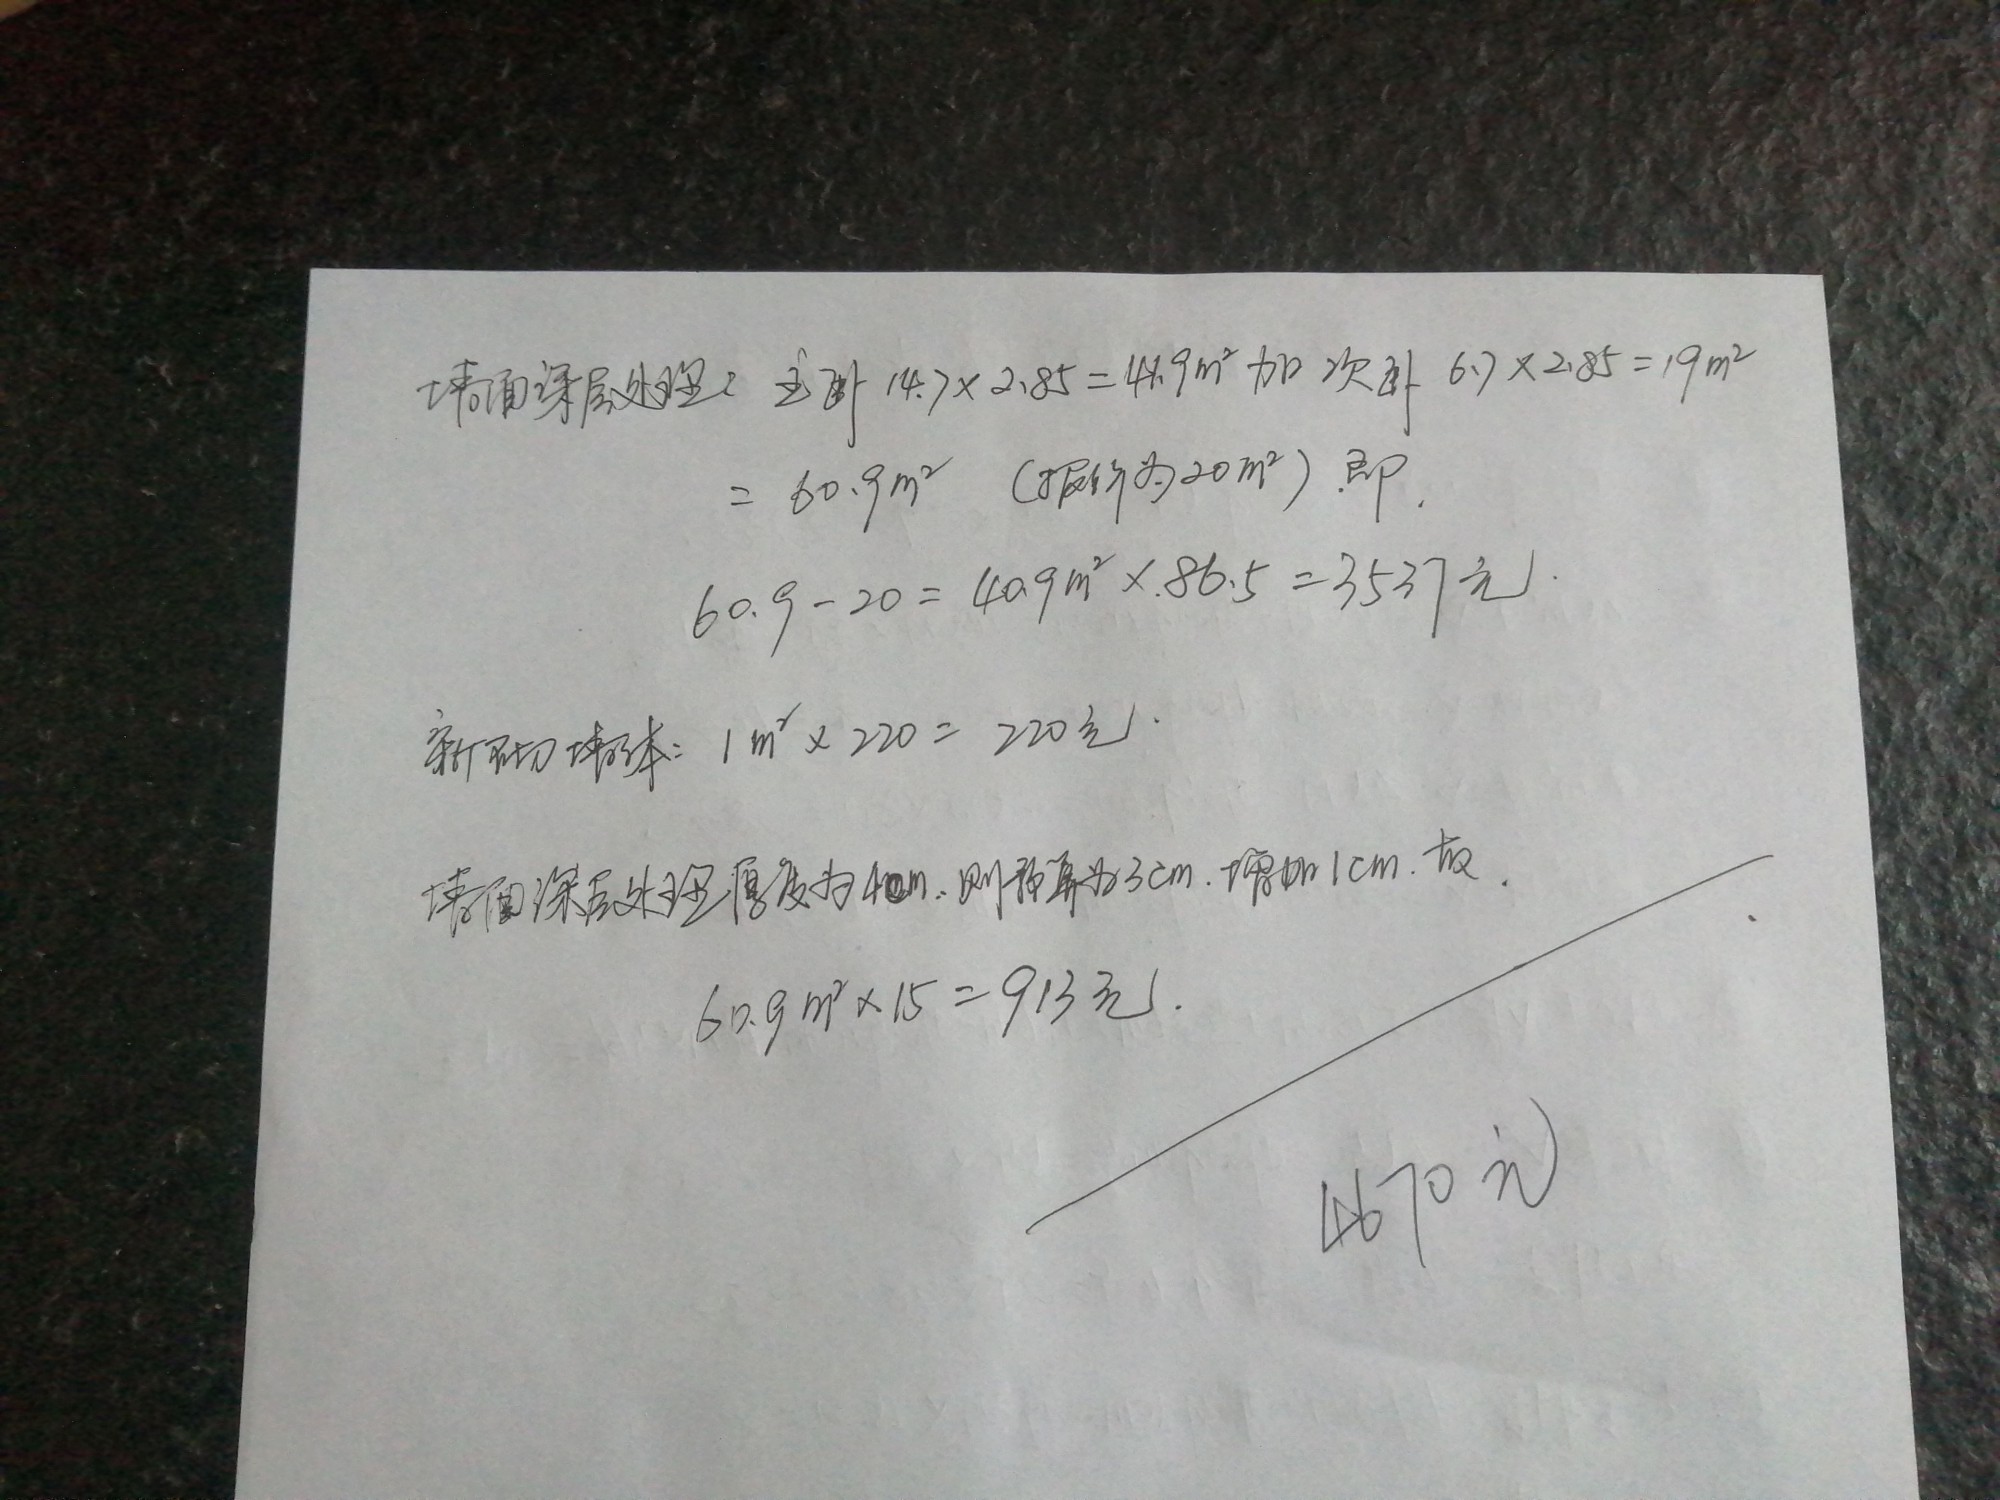 墙面深层处理: 主卧 14.7×2.85=41.9m² 加 次卧 6.7×2.85=19m²
=60.9m² (报价为20m²) 即.
60.9-20=40.9m²×86.5=3537元.
新砌墙体: 1m²×220=220元.
墙面深层处理厚度为4cm. 则预算为3cm. 增加1cm. 故.
60.9m²×15=913元.
4670元